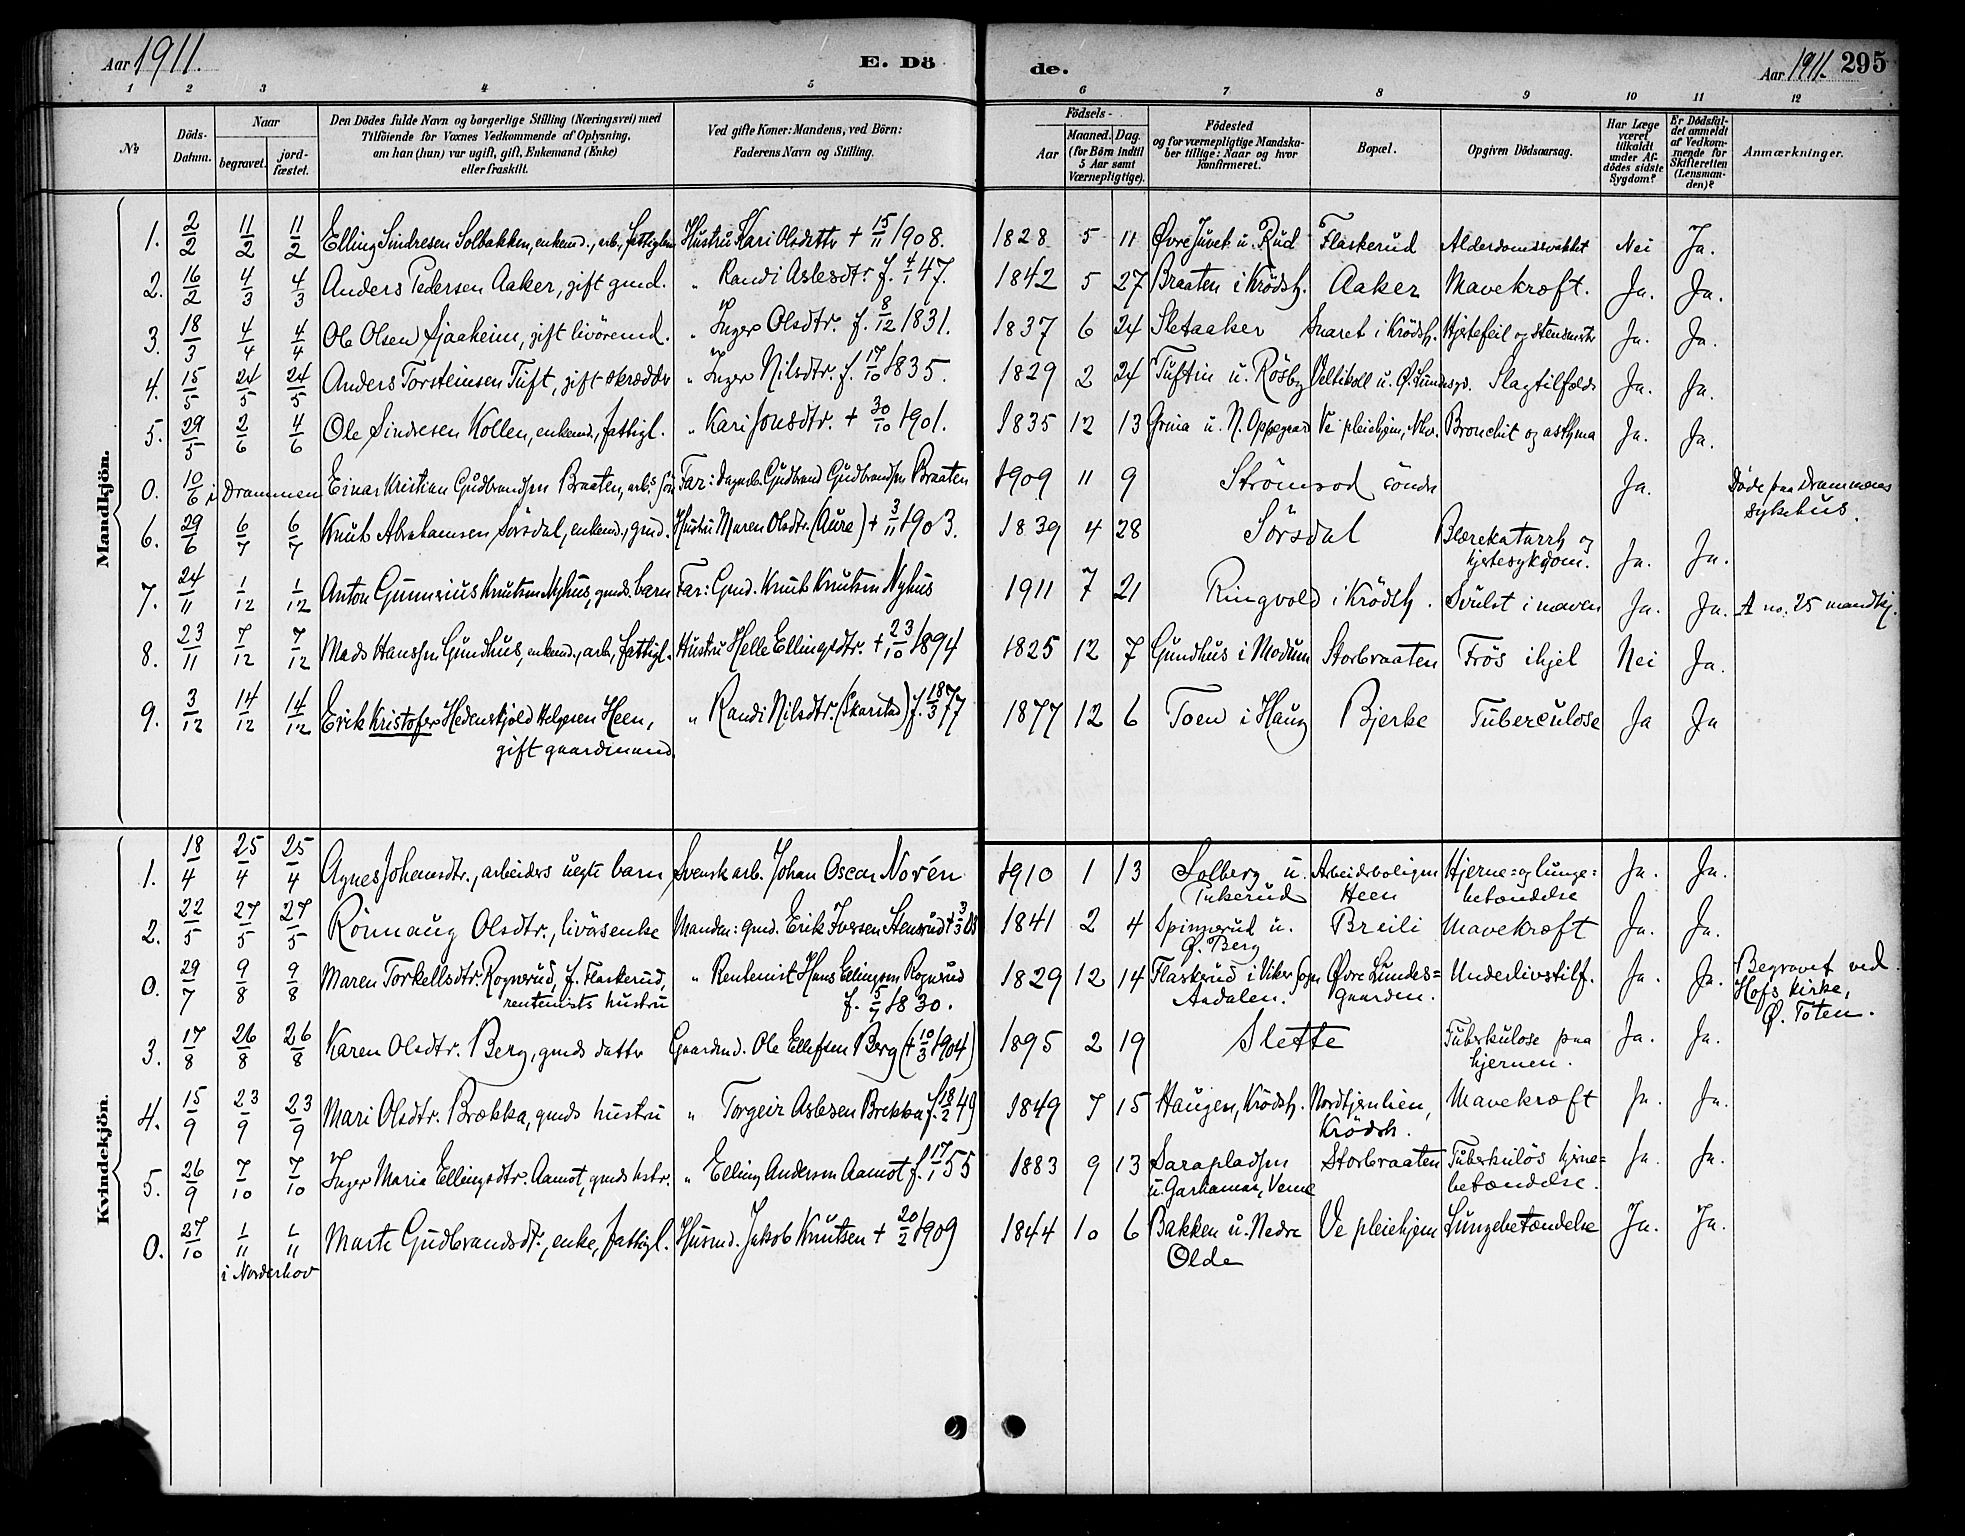 Aar 1911.
E. Dö
de.
Aar 1911. 295
1 2 3 4 5 6 7 8 9 10 11 12
No
Döds-Datum.
Naar
begravet.
jord-fæstet.
Den Dödes fulde Navn og borgerlige Stilling (Næringsvei) med
Tilföiende for Voxnes Vedkommende af Oplysning,
om han (hun) var ugift, gift, Enkemand (Enke)
eller fraskilt.
Ved gifte Koner: Mandens, ved Börn:
Faderens Navn og Stilling.
Födsels-
Aar
Maaned. Dag.
(for Börn indtil
5 Aar samt
Værnepligtige).
Födested
og for værnepligtige Mandska-
ber tillige: Naar og hvor
konfirmeret.
Bopæl.
Opgiven Dödsaarsag.
Har Læge
været
tilkaldt
under Af-
dödes sidste
Sygdom?
Er Dödsfal-
det anmeldt
af Vedkom-
mende for
Skifteretten
(Lensman-
den)?
Anmærkninger.
Mandkjön.
1. 2/2 11/2 11/2 Elling Sindresen Solbakken, enkem., arb., fattiglem Hustru Kari Olsdatter + 15/11 1908. 1828 5 11 Øvre Juvet u. Rud Flaskerud Alderdomssvakhet Nei Ja.
2. 16/2 4/3 4/3 Anders Pedersen Aaker, gift gmd. " Randi Aslesdtr. f. 4/1 47. 1842 5 27 Braaten i Krödsh. Aaker Mavekræft. Ja. Ja.
3. 18/3 4/4 4/4 Ole Olsen Sjaaheim, gift livöremd. " Inger Olsdtr. f. 8/12 1831. 1837 6 24 Sletaaker Snaret i Krödsh. Hjertefeil og Ja. Ja.
4. 15/5 24/5 24/5 Anders Torsteinsen Tuft, gift skrædder " Inger Nilsdtr. f. 17/10 1835. 1829 2 24 Tuftin u. Rösby Veltikoll u. Ø. Lundesgd. Slagtilfælde Ja. Ja.
5. 29/5 2/6 4/6 Ole Sindresen Kollen, enkemd., fattigl. " Kari Jonsdtr. + 30/10 1901. 1835 12 13 Grina u. N. Oppegaard Ve pleiehjem, Bronchit og asthma Ja. Ja.
0. 10/6 i Drammen Einar Kristian Gudbrandsen Braaten, arb.s sön Far: Dagarb. Gudbrand Gudbrandsen Braaten 1909 11 9 Strömsod söndre Ja. Döde paa Drammens
sykehus.
6. 29/6 6/7 6/7 Knut Abrahamsen Sörsdal, enkemd., gmd. Hustru Maren Olsdtr. (Aure) + 3/11 1903. 1839 4 28 Sörsdal Blærekatarrh og
hjertesykdom. Ja. Ja.
7. 24/11 1/12 1/12 Anton Gunnerius Knutsen Nyhus, gmds. barn Far: Gmd. Knut Knutsen Nyhus 1911 7 21 Ringvold i Krödsh. Svulst i maven Ja. Ja. A no. 25 mandkj.
8. 23/11 7/12 7/12 Mads Hansen Gundhus, enkemd., arb., fattigl. Hustru Helle Ellingsdtr. + 23/10 1894 1825 12 7 Gundhus i Modum Storbraaten Frös ihjel Nei Ja.
9. 3/12 14/12 14/12 Erik Kristofer Hedenskjold Helgesen Heen,
gift gaardmand. " Randi Nilsdtr. (Skarstad) f. 18/3 77 1877 12 6 Toen i Haug Bjerke Tuberculose Ja Ja
Kvindekjön.
1. 18/4 25/4 25/4 Agnes Johansdtr., arbeiders uegte barn Svensk arb. Johan Oscar Norén 1910 1 13 Solberg u.
Tukerud Arbeidsboligen
Heen Hjerne= og lunge=
betændelse Ja. Ja.
2. 22/5 27/5 27/5 Rönnaug Olsdtr., livörsenke Manden: gmd. Erik Iversen Stensrud + 1841 2 4 Spinnerud u.
Ø. Berg Breili Mavekræft Ja. Ja.
0. 29/7 9/8 9/8 Maren Torkellsdtr. Rognerud, f. Flaskerud,
rentenists hustru " Rentenist Hans Ellingsen Rognerud
f. 5/7 1830. 1829 12 14 Flaskerud i Viker Sogn
Aadalen. Øvre Lundes=
gaarden. Underlivstilf. Ja. Ja. Begravet ved
Hofs kirke,
Ø. Toten.
3. 17/8 26/8 26/8 Karen Olsdtr. Berg, gmds datter Gaardmd. Ole Ellefsen Berg (+ 10/3 1904) 1895 2 19 Slette Tuberkulose paa
hjernen. Ja. Ja.
4. 15/9 23/9 23/9 Mari Olsdtr. Brækka, gmds hustru " Torgeir Aslesen Brekka f. 18/2 49 1849 7 15 Haugen, Krödsh. Nordtjernlien,
Krödsh. Mavekræft Ja. Ja.
5. 26/9 7/10 7/10 Inger Maria Ellingsdtr. Aamot, gmds hstr. " Elling Andersen Aamot f. 17/1 55 1883 9 13 Sarapladsen
u. Garhamar, Veme Storbraaten Tuberkulös hjerne=
betændelse. Ja. Ja.
0. 27/10 1/11 1/11 i Norderhov Marte Gudbrandsdt., enke, fattigl. Husmd. Jakob Knutsen + 20/2 1909 1844 10 6 Bakken u. Nedre
Olde Ve pleiehjem Lungebetændelse Ja. Ja.